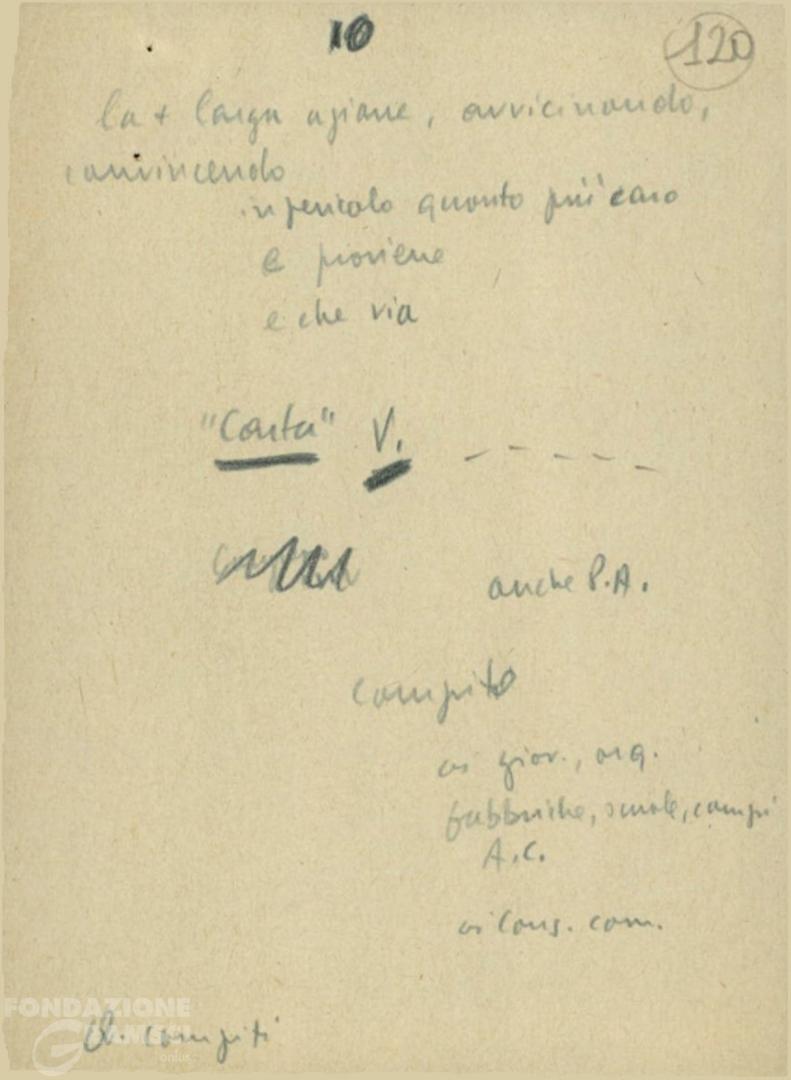 10
120
la + larga azione, avvicinando,
convincendo
in pericolo quanto più caro
e proviene
e che via
"Carta" V.
anche P.A.
compito
ai giov., org.
fabbriche, scuole, campi
A.C.
ai Cons. com.
compiti
FONDAZIONE
GRAMSCI
onlus